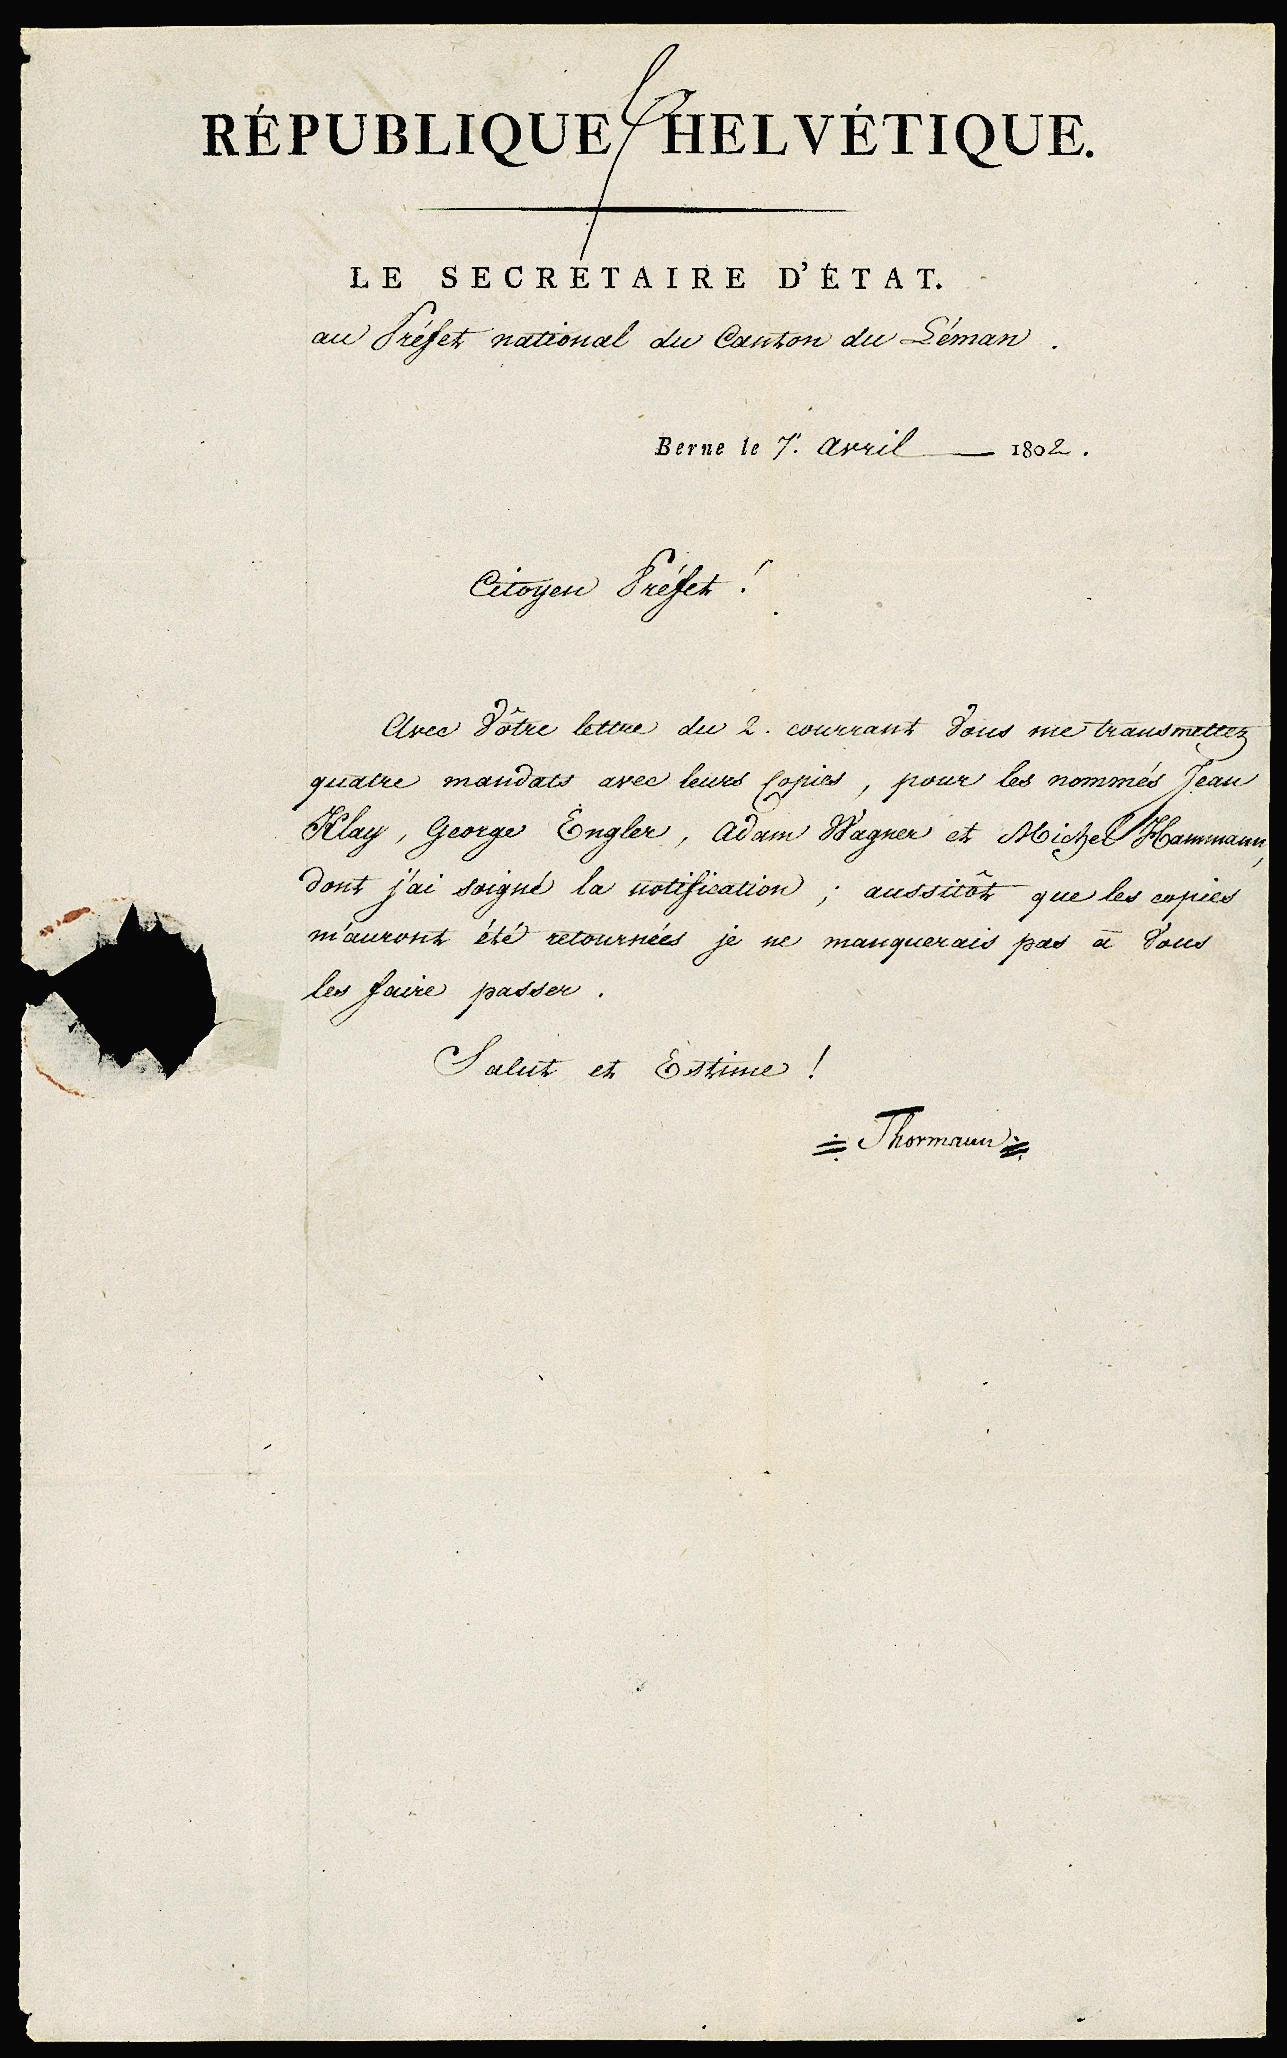 RÉPUBLIQUE HELVÉTIQUE.
LE SECRÉTAIRE D'ÉTAT.
au Préfet national du Canton du Léman.
Berne le 7. avril 1802.
Citoyen Préfet !
Avec Vôtre lettre du 2. courrant Vous me transmettez
quatre mandats avec leurs Copies, pour les nommés Jean
Klay, George Engler, Adam Wagner et Michel Hammann,
dont j'ai soigné la notification ; aussitôt que les copies
m'auront été retournées je ne manquerais pas à Vous
les faire passer.
Salut et Estime !
Thormann